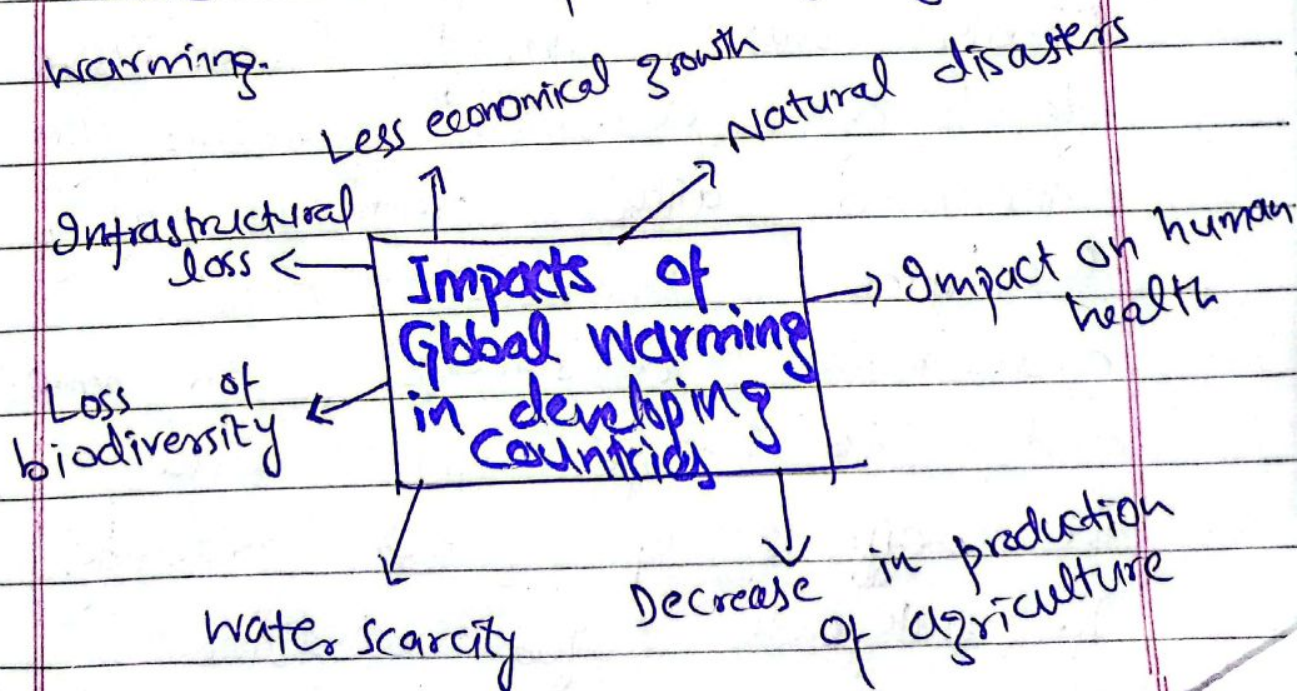 warming.
Less economical growth
Natural disasters
Infrastructural
loss
Impacts of
Global warming
in developing
Countries
Impact on human
health
Loss of
biodiversity
Water scarcity
Decrease in production
of agriculture